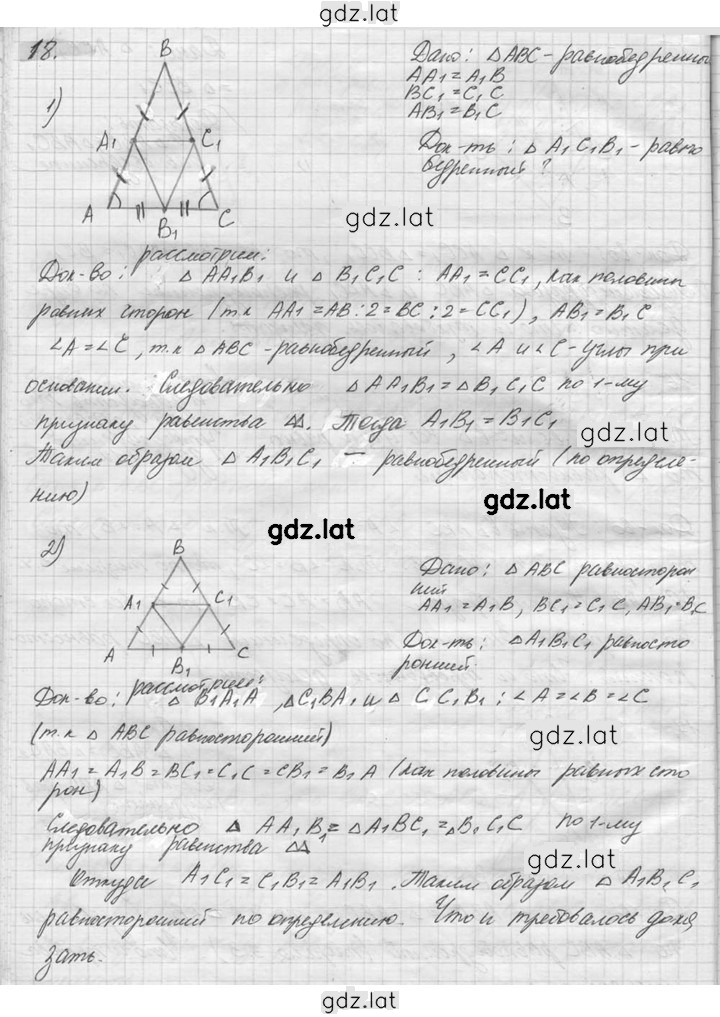 gdz.lat
18.
1)
B
A1
C1
A
B1
C
Дано: △ABC - равнобедренны
AA1 = A1B
BC1 = C1C
AB1 = B1C
Док-ть: △A1C1B1 - равно
бедренный?
gdz.lat
рассмотрим:
Док-во: △AA1B1 и △B1C1C: AA1 = CC1, как половины
равных сторон (т.к AA1 = AB:2 = BC:2 = CC1), AB1 = B1C
∠A = ∠C, т.к △ABC - равнобедренный, ∠A и ∠C - углы при
основании. Следовательно △AA1B1 = △B1C1C по 1-му
признаку равенства △△. Тогда A1B1 = B1C1
gdz.lat
Таким образом △A1B1C1 - равнобедренный (по определе-
нию)
gdz.lat
gdz.lat
2)
B
A1
C1
A
B1
C
Дано: △ABC равносторон
ний
AA1 = A1B, BC1 = C1C, AB1 = B1C
Док-ть: △A1B1C1 равносто
ронний.
рассмотрим:
Док-во: △B1A1A, △C1BA1 и △CC1B1: ∠A = ∠B = ∠C
(т.к △ABC равносторонний)
gdz.lat
AA1 = A1B = BC1 = C1C = CB1 = B1A (как половины равных сто
рон)
Следовательно △AA1B1 = △A1BC1 = △B1C1C по 1-му
признаку равенства △△
gdz.lat
Откуда A1C1 = C1B1 = A1B1. Таким образом △A1B1C1
равносторонний по определению. Что и требовалось дока
зать.
gdz.lat
gdz.lat